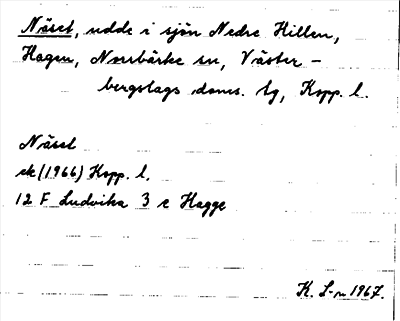 Näset, udde i sjön Nedre Hillen,
Hagen, Norrbärke sn, Väster-
bergslags doms. tg, Kopp. l.
Näset
ek (1966) Kopp. l.
12 F Ludvika 3 c Hagge
K. L-n 1967.